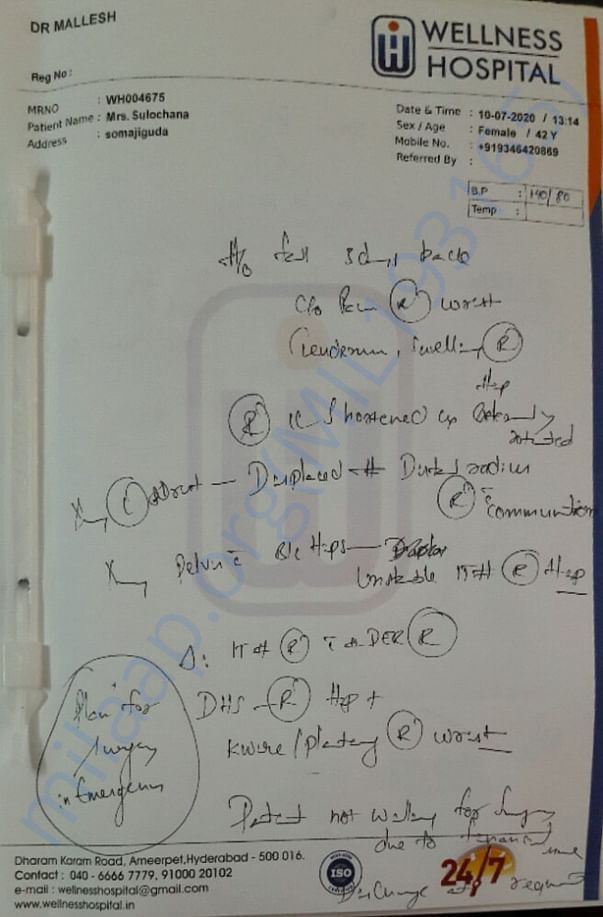 DR MALLESH
WELLNESS
HOSPITAL
Reg No :
MRNO : WH004675
Patient Name : Mrs. Sulochana
Address : somajiguda
Date & Time : 10-07-2020 / 13:14
Sex / Age : Female / 42 Y
Mobile No. : +919346420869
Referred By :
B.P : 140/80
Temp :
H/o fall 3 days back
C/o Pain (R) wrist
Tenderness, Swelling (R)
Hip
(R) shortened
rotated
Displaced # Distal radius
(R) c̄ communition
Pelvis c̄ B/L Hips —
Unstable IT # (R) Hip
Δ: IT # (R) c̄ # DER (R)
DHS - (R) Hip +
Kwire/plating (R) wrist
Plan for
surgery
in Emergency
Patient not willing for surgery
due to financial issue
Discharge at request
milaap.org(MIL
Dharam Karam Road, Ameerpet,Hyderabad - 500 016.
Contact : 040 - 6666 7779, 91000 20102
e-mail : wellnesshospital@gmail.com
www.wellnesshospital.in
ISO
24/7